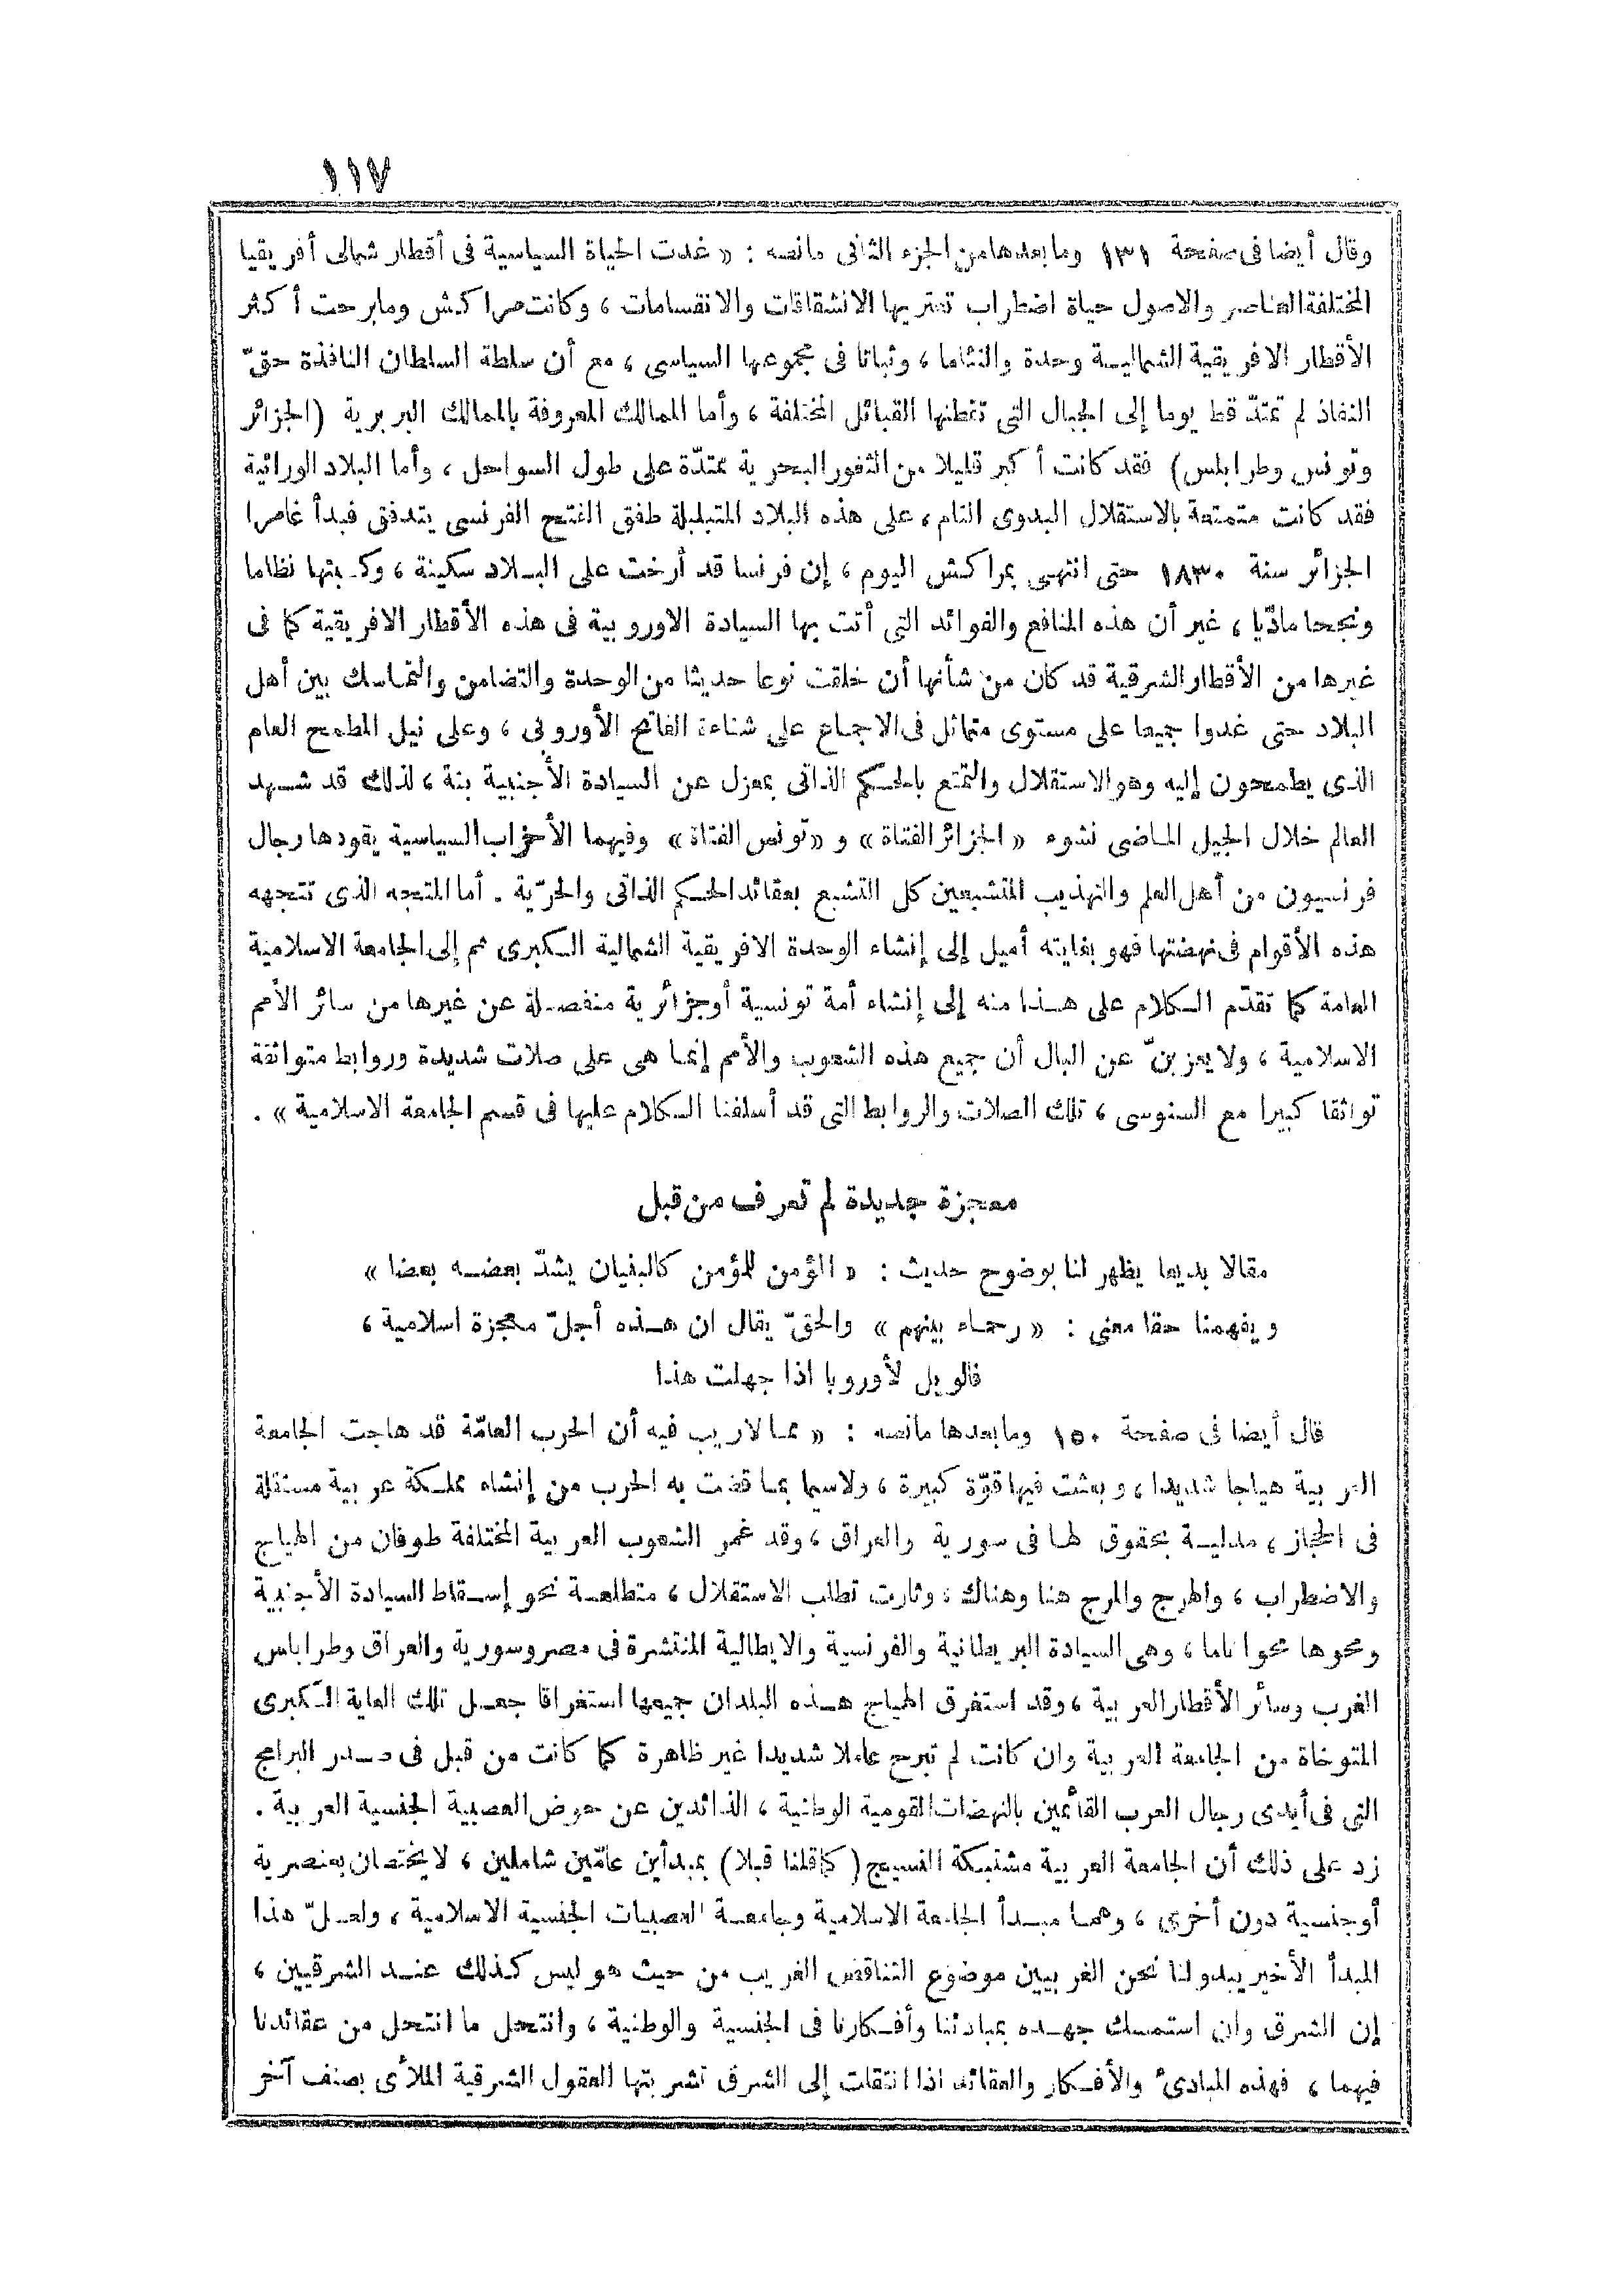 ١١٧
وقال أيضا فى صفحة ١٣١ وما بعدها من الجزء الثانى مانصه : « غدت الحياة السياسية فى أقطار شمالى أفريقيا
المختلفة العناصر والاصول حياة اضطراب تعتريها الانشقاقات والانقسامات ، وكانت مراكش ومابرحت أكثر
الأقطار الافريقية الشماليـة وحدة والتئاما ، وثباتا فى مجموعها السياسى ، مع أن سلطة السلطان النافذة حقّ
النفاذ لم تمتدّ قط يوما إلى الجبال التى تقطنها القبائل المختلفة ، وأما الممالك المعروفة بالممالك البربرية (الجزائر
وتونس وطرابلس) فقد كانت أكبر قليلا من الثغور البحرية ممتدّة على طول السواحل ، وأما البلاد الورائية
فقد كانت متمتعة بالاستقلال البدوى التام ، على هذه البلاد المتبلبلة طفق الفتح الفرنسى يتدفق فبدأ غامرا
الجزائر سنة ١٨٣٠ حتى انتهى بمراكش اليوم ، إن فرنسا قد أرخت على البـلاد سكينة ، وكـبتها نظاما
ونجحا مادّيا ، غير أن هذه المنافع والفوائد التى أتت بها السيادة الاوروبية فى هذه الأقطار الافريقية كما فى
غيرها من الأقطار الشرقية قد كان من شأنها أن خلقت نوعا حديثا من الوحدة والتضامن والتماسك بين أهل
البلاد حتى غدوا جميعا على مستوى متماثل فى الاجمـاع على شناءة الفاتح الأوروبى ، وعلى نيل المطمح العام
الذى يطمحون إليه وهو الاستقلال والتمتع بالحـكم الذاتى بمعزل عن السيادة الأجنبية بتة ، لذلك قد شـهد
العالم خلال الجيل المـاضى نشوء « الجزائر الفتاة » و « تونس الفتاة » وفيهما الأحزاب السياسية يقودها رجال
فرنسيون من أهل العلم والتهذيب المتشبعين كل التشبع بعقائد الحـكم الذاتى والحرّية . أما المتجه الذى تتجهه
هذه الأقوام فى نهضتها فهو بغايته أميل إلى إنشاء الوحدة الافريقية الشمالية الـكبرى ثم إلى الجامعة الاسلامية
العامة كما تقدّم الـكلام على هـذا منه إلى إنشاء أمة تونسية أوجزائرية منفصـلة عن غيرها من سائر الأمم
الاسلامية ، ولا يعزبنّ عن البال أن جميع هذه الشعوب والأمم إنمـا هى على صلات شديدة وروابط متواثقة
تواثقا كبيرا مع السنوسى ، تلك الصلات والروابط التى قد أسلفنا الـكلام عليها فى قسم الجامعة الاسلامية » .
معجزة جديدة لم تعرف من قبل
مقالا بديعا يظهر لنا بوضوح حديث : « المؤمن للمؤمن كالبنيان يشدّ بعضـه بعضا »
ويفهمنا حقا معنى : « رحمـاء بينهم » والحقّ يقال ان هـذه أجلّ معجزة اسلامية ،
فالويل لأوروبا اذا جهلت هذا
قال أيضا فى صفحة ١٥٠ وما بعدها مانصه : « ممـا لاريب فيه أن الحرب العامّة قد هاجت الجامعة
العربية هياجا شديدا ، وبعثت فيها قوّة كبيرة ، ولاسيما بمـا قضت به الحرب من إنشاء مملـكة عربية مستقلة
فى الحجاز ، مدليـة بحقوق لهـا فى سورية والعراق ، وقد غمر الشعوب العربية المختلفة طوفان من الهياج
والاضطراب ، والهرج والمرج هنا وهناك ، وثارت تطلب الاستقلال ، متطلعـة نحو إسـقاط السيادة الأجنبية
ومحوها محوا تاما ، وهى السيادة البريطانية والفرنسية والايطالية المنتشرة فى مصر وسورية والعراق وطرابلس
الغرب وسائر الأقطار العربية ، وقد استغرق الهياج هـذه البلدان جميعها استغراقا جعـل تلك الغاية الـكبرى
المتوخاة من الجامعة العربية وان كانت لم تبرح عاملا شديدا غير ظاهرة كما كانت من قبل فى صـدر البرامج
التى فى أيدى رجال العرب القائمين بالنهضات القومية الوطنية ، الذائدين عن حوض العصبية الجنسية العربية .
زد على ذلك أن الجامعة العربية مشتبكة النسيج (كما قلنا قبلا) بمبدأين عامّين شاملين ، لا يختصان بعنصرية
أوجنسية دون أخرى ، وهمـا مبـدأ الجامعة الاسلامية وجامعـة العصبيات الجنسية الاسلامية ، ولعـلّ هذا
المبدأ الأخير يبدو لنا نحن الغربيين موضوع التناقض الغريب من حيث هو ليس كذلك عنـد الشرقيين ،
إن الشرق وان استمسك جهـده بمبادئنا وأفـكارنا فى الجنسية والوطنية ، وانتحل ما انتحل من عقائدنا
فيهما ، فهذه المبادئ والأفـكار والعقائد اذا انتقلت إلى الشرق تشربتها العقول الشرقية الملأى بصنف آخر